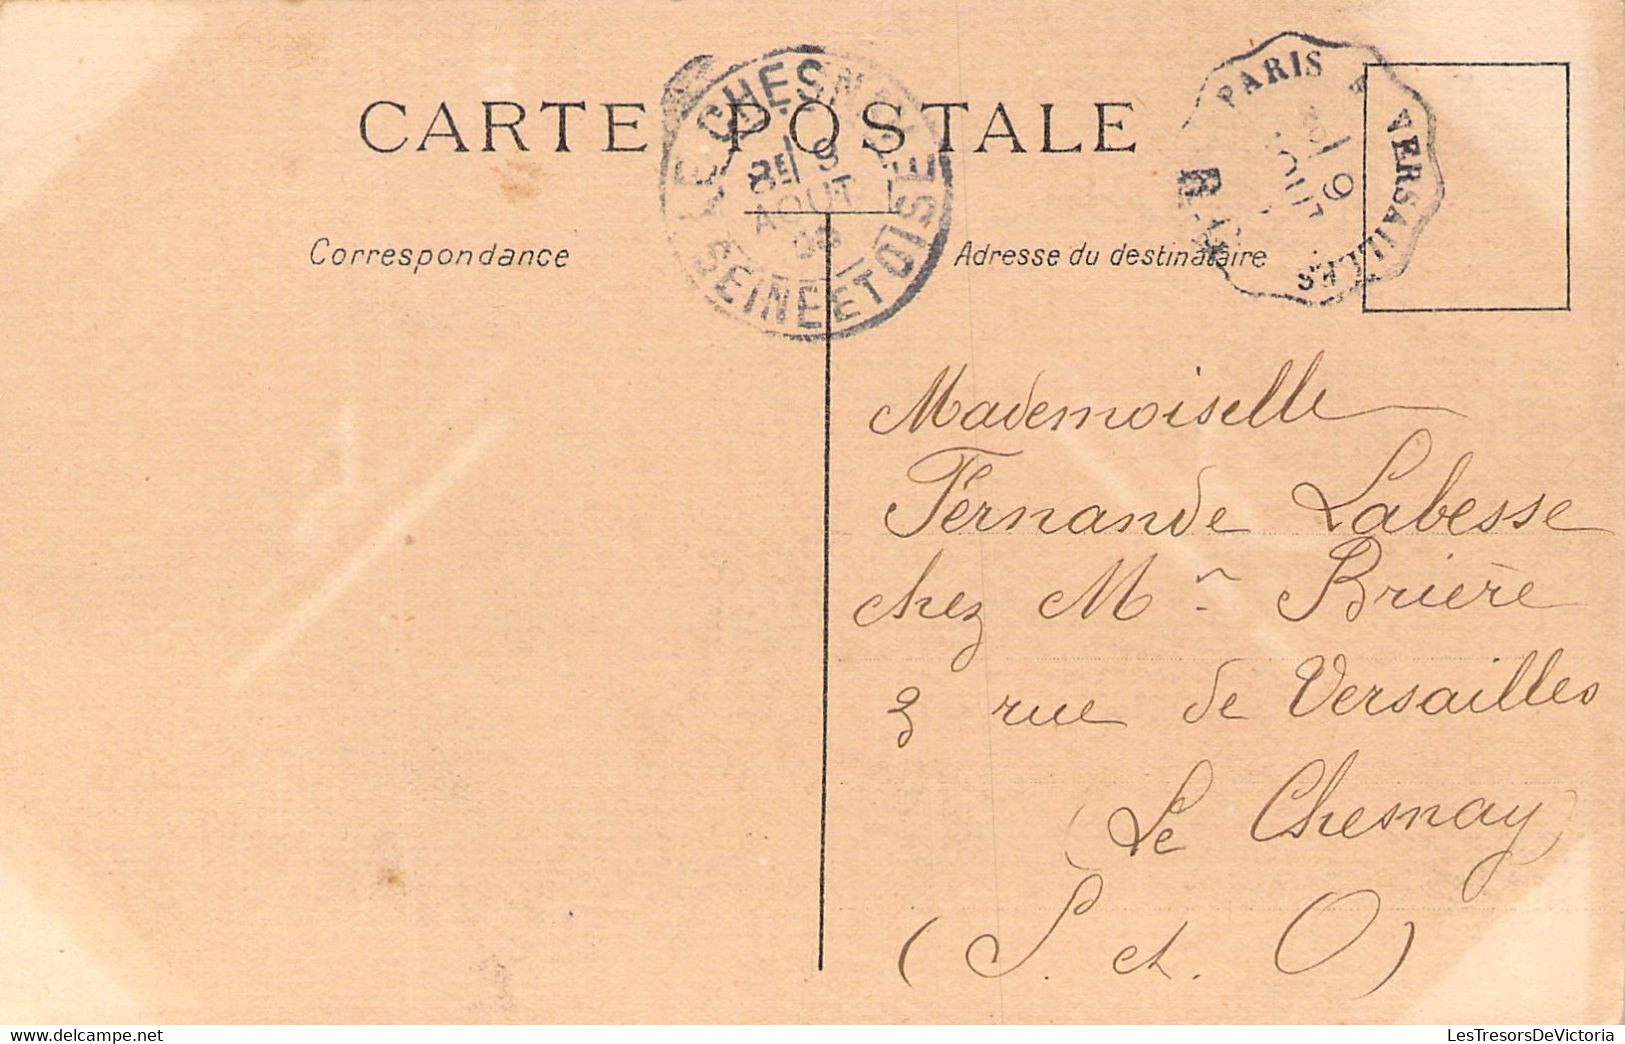 CARTE POSTALE
LE CHESNAY
8E 9
AOUT
SEINE ET OISE
PARIS A VERSAILLES
9
AOUT
Correspondance
Adresse du destinataire
Mademoiselle
Fernande Labesse
chez Mr Brière
3 rue de Versailles
(Le Chesnay)
(S. et. O)
LesTresorsDeVictoria.com